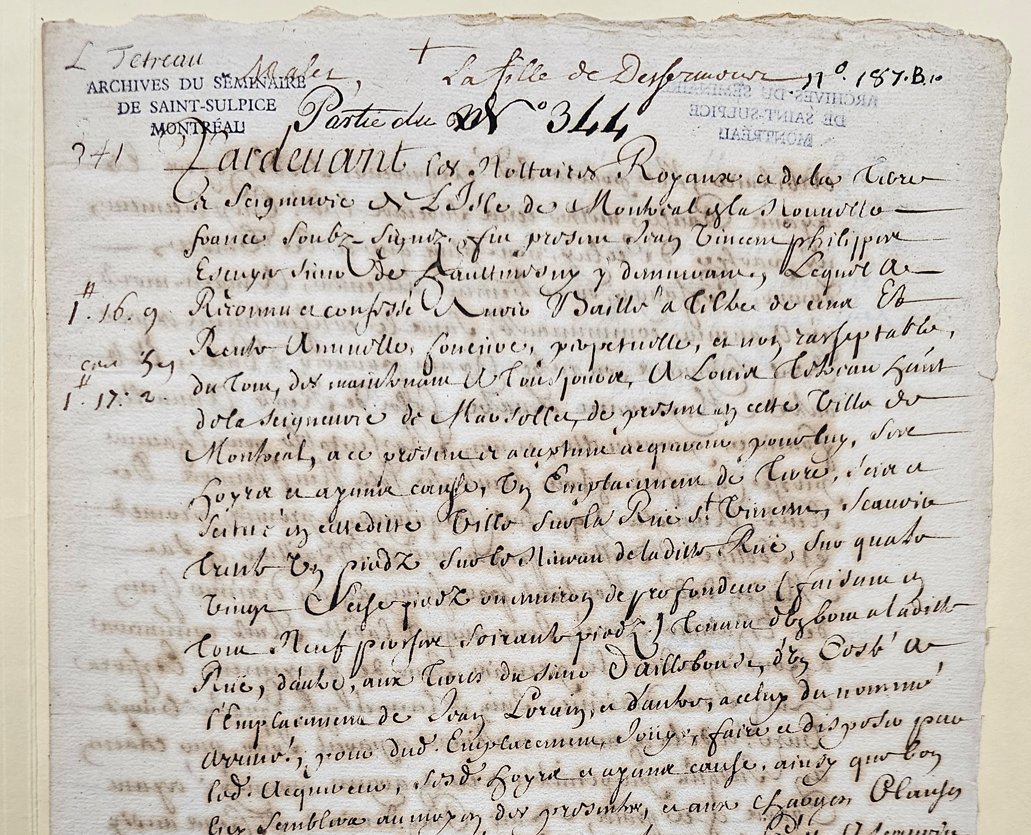 L Tetreau
La fille de Desermour n°. 187.B.
ARCHIVES DU SÉMINAIRE
DE SAINT-SULPICE
MONTRÉAL
Partie du N° 344
241
Pardevant les Nottaires Royaux et de la Terre
Et Seigneurie de L'Isle de Montréal en la Nouvelle
france soubz-signez, fut présent Jean Vincent philippe
Escuyer sieur de Haultmesny y demeurant, Lequel a
1.16.9 Reconnu et confessé Avoir Baillé a tiltre de cens Et
Rente Annuelle, fonciere, perpetuelle, et non raschaptable,
1.17.2. du tout, des maintenant A Tousjours, A Louis Tetreau habitt
de la seigneurie de Marsolle, de present en cette Ville de
Montréal, a ce present et acceptant acquereur pour luy, ses
hoyrs et ayans cause, Un Emplacement de Terre, scis et
scitué en cette ditte Ville sur la Rue st Vincent, scauoir
trente Un piedz sur le Niveau de la ditte Rue, sur quatre
Vingt Seise piedz ou environ de profondeur (faisant en
tout Neuf soixante piedz) tenant d'un bout a la ditte
Rue, d'autre, aux Terres du sieur Dailleboust, d'un Costé a
l'Emplacement de Jean Lorain, et d'autre, a celuy du nommé
pour dud. Emplacement, Jouyr, faire et disposer par
led. Acquereur, sesd. Hoyrs et ayans cause, ainsy que bon
leur semblera au moyen des presentes, et aux Charges, Clauses